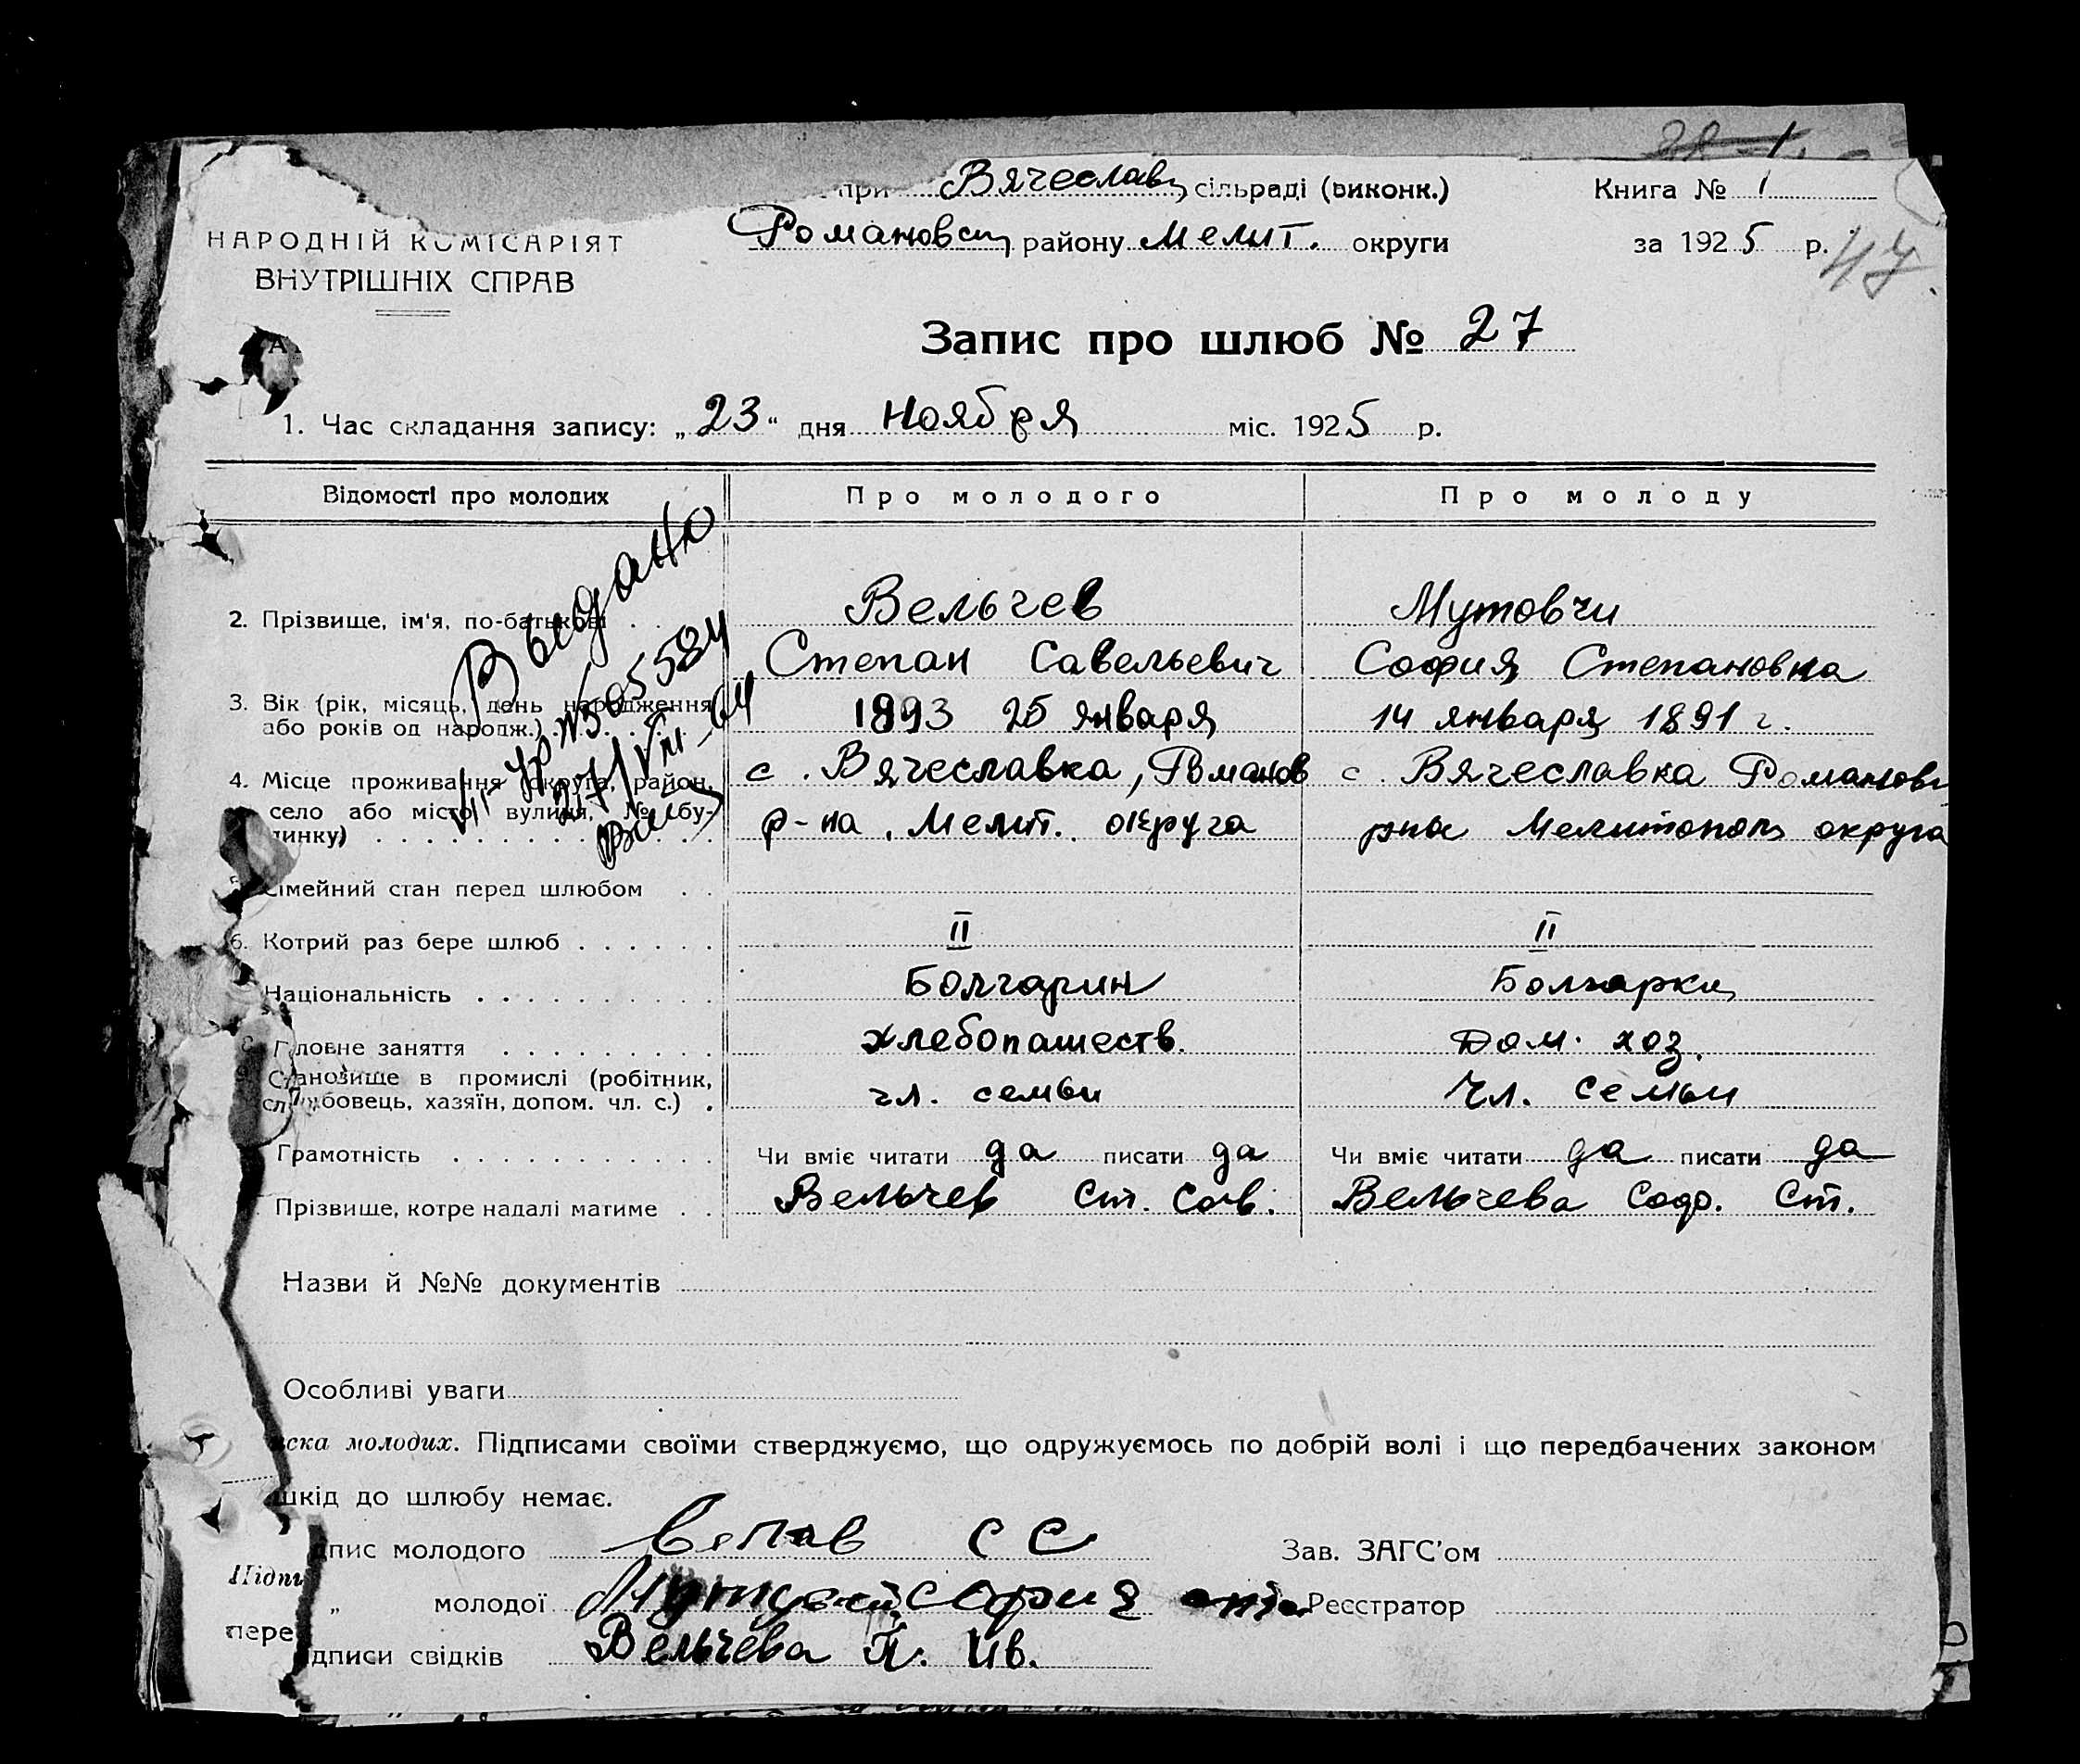 при Вячеславц сільраді (виконк.) Книга № 1
Романовсц району Мелит. округи за 1925 р.
47
НАРОДНІЙ КОМІСАРІЯТ
ВНУТРІШНІХ СПРАВ
Запис про шлюб № 27
1. Час складання запису: „23“ дня ноября міс. 1925 р.
Відомості про молодих Про молодого Про молоду
Выдано
№505584
27/VIII-64
2. Прізвище, ім'я, по-батькові . . Вельчев Мутовчи
Степан Савельевич София Степановна
3. Вік (рік, місяць, день народження 1893 25 января 14 января 1891 г.
або років од народж.) . . . .
4. Місце проживання (округа, район, с. Вячеславка, Романов с. Вячеславка Романов
село або місто, вулиця, № бу-
динку) . . . . . . . . . . р-на, Мелит. округа рна Мелитопол округа
сімейний стан перед шлюбом . .
6. Котрий раз бере шлюб . . . . . . II II
Національність . . . . . . . . . . Болгарин Болгарка
8 Головне заняття . . . . . . . . . хлебопашеств. Дом. хоз.
Становище в промислі (робітник,
службовець, хазяїн, допом. чл. с.) . чл. семьи Чл. семьи
Грамотність . . . . . . . . . . . Чи вміє читати да писати да Чи вміє читати да писати да
Прізвище, котре надалі матиме . . Вельчев Ст. Сав. Вельчева Соф. Ст.
Назви й №№ документів
Особливі уваги
ска молодих. Підписами своїми стверджуємо, що одружуємось по добрій волі і що передбачених законом
шкід до шлюбу немає.
дпис молодого С С Зав. ЗАГС'ом
Підпи
„ молодої София Реєстратор
пере
дписи свідків Вельчева П. Ив.